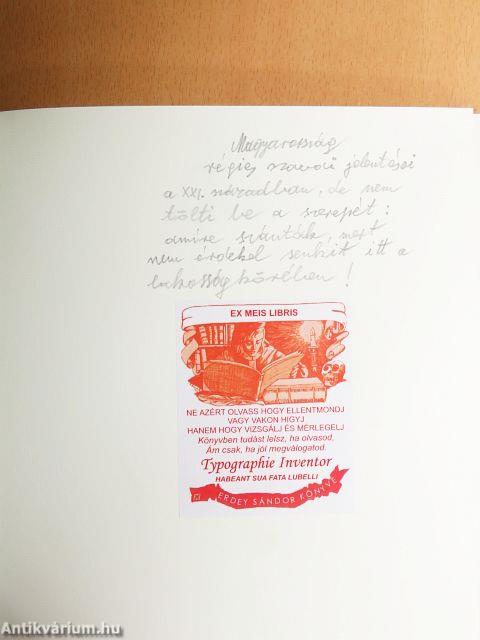 Magyarország
régies szavai jelentései
a XXI. században, de nem
tölti be a szerepét:
amire szánták, mert
nem érdekel senkit itt a
lakosság körében!
EX MEIS LIBRIS
NE AZÉRT OLVASS HOGY ELLENTMONDJ
VAGY VAKON HIGYJ
HANEM HOGY VIZSGÁLJ ÉS MÉRLEGELJ
Könyvben tudást lelsz, ha olvasod,
Ám csak, ha jól megválogatod.
Typographie Inventor
HABEANT SUA FATA LUBELLI
ERDEY SÁNDOR KÖNYVE
Antikvárium.hu